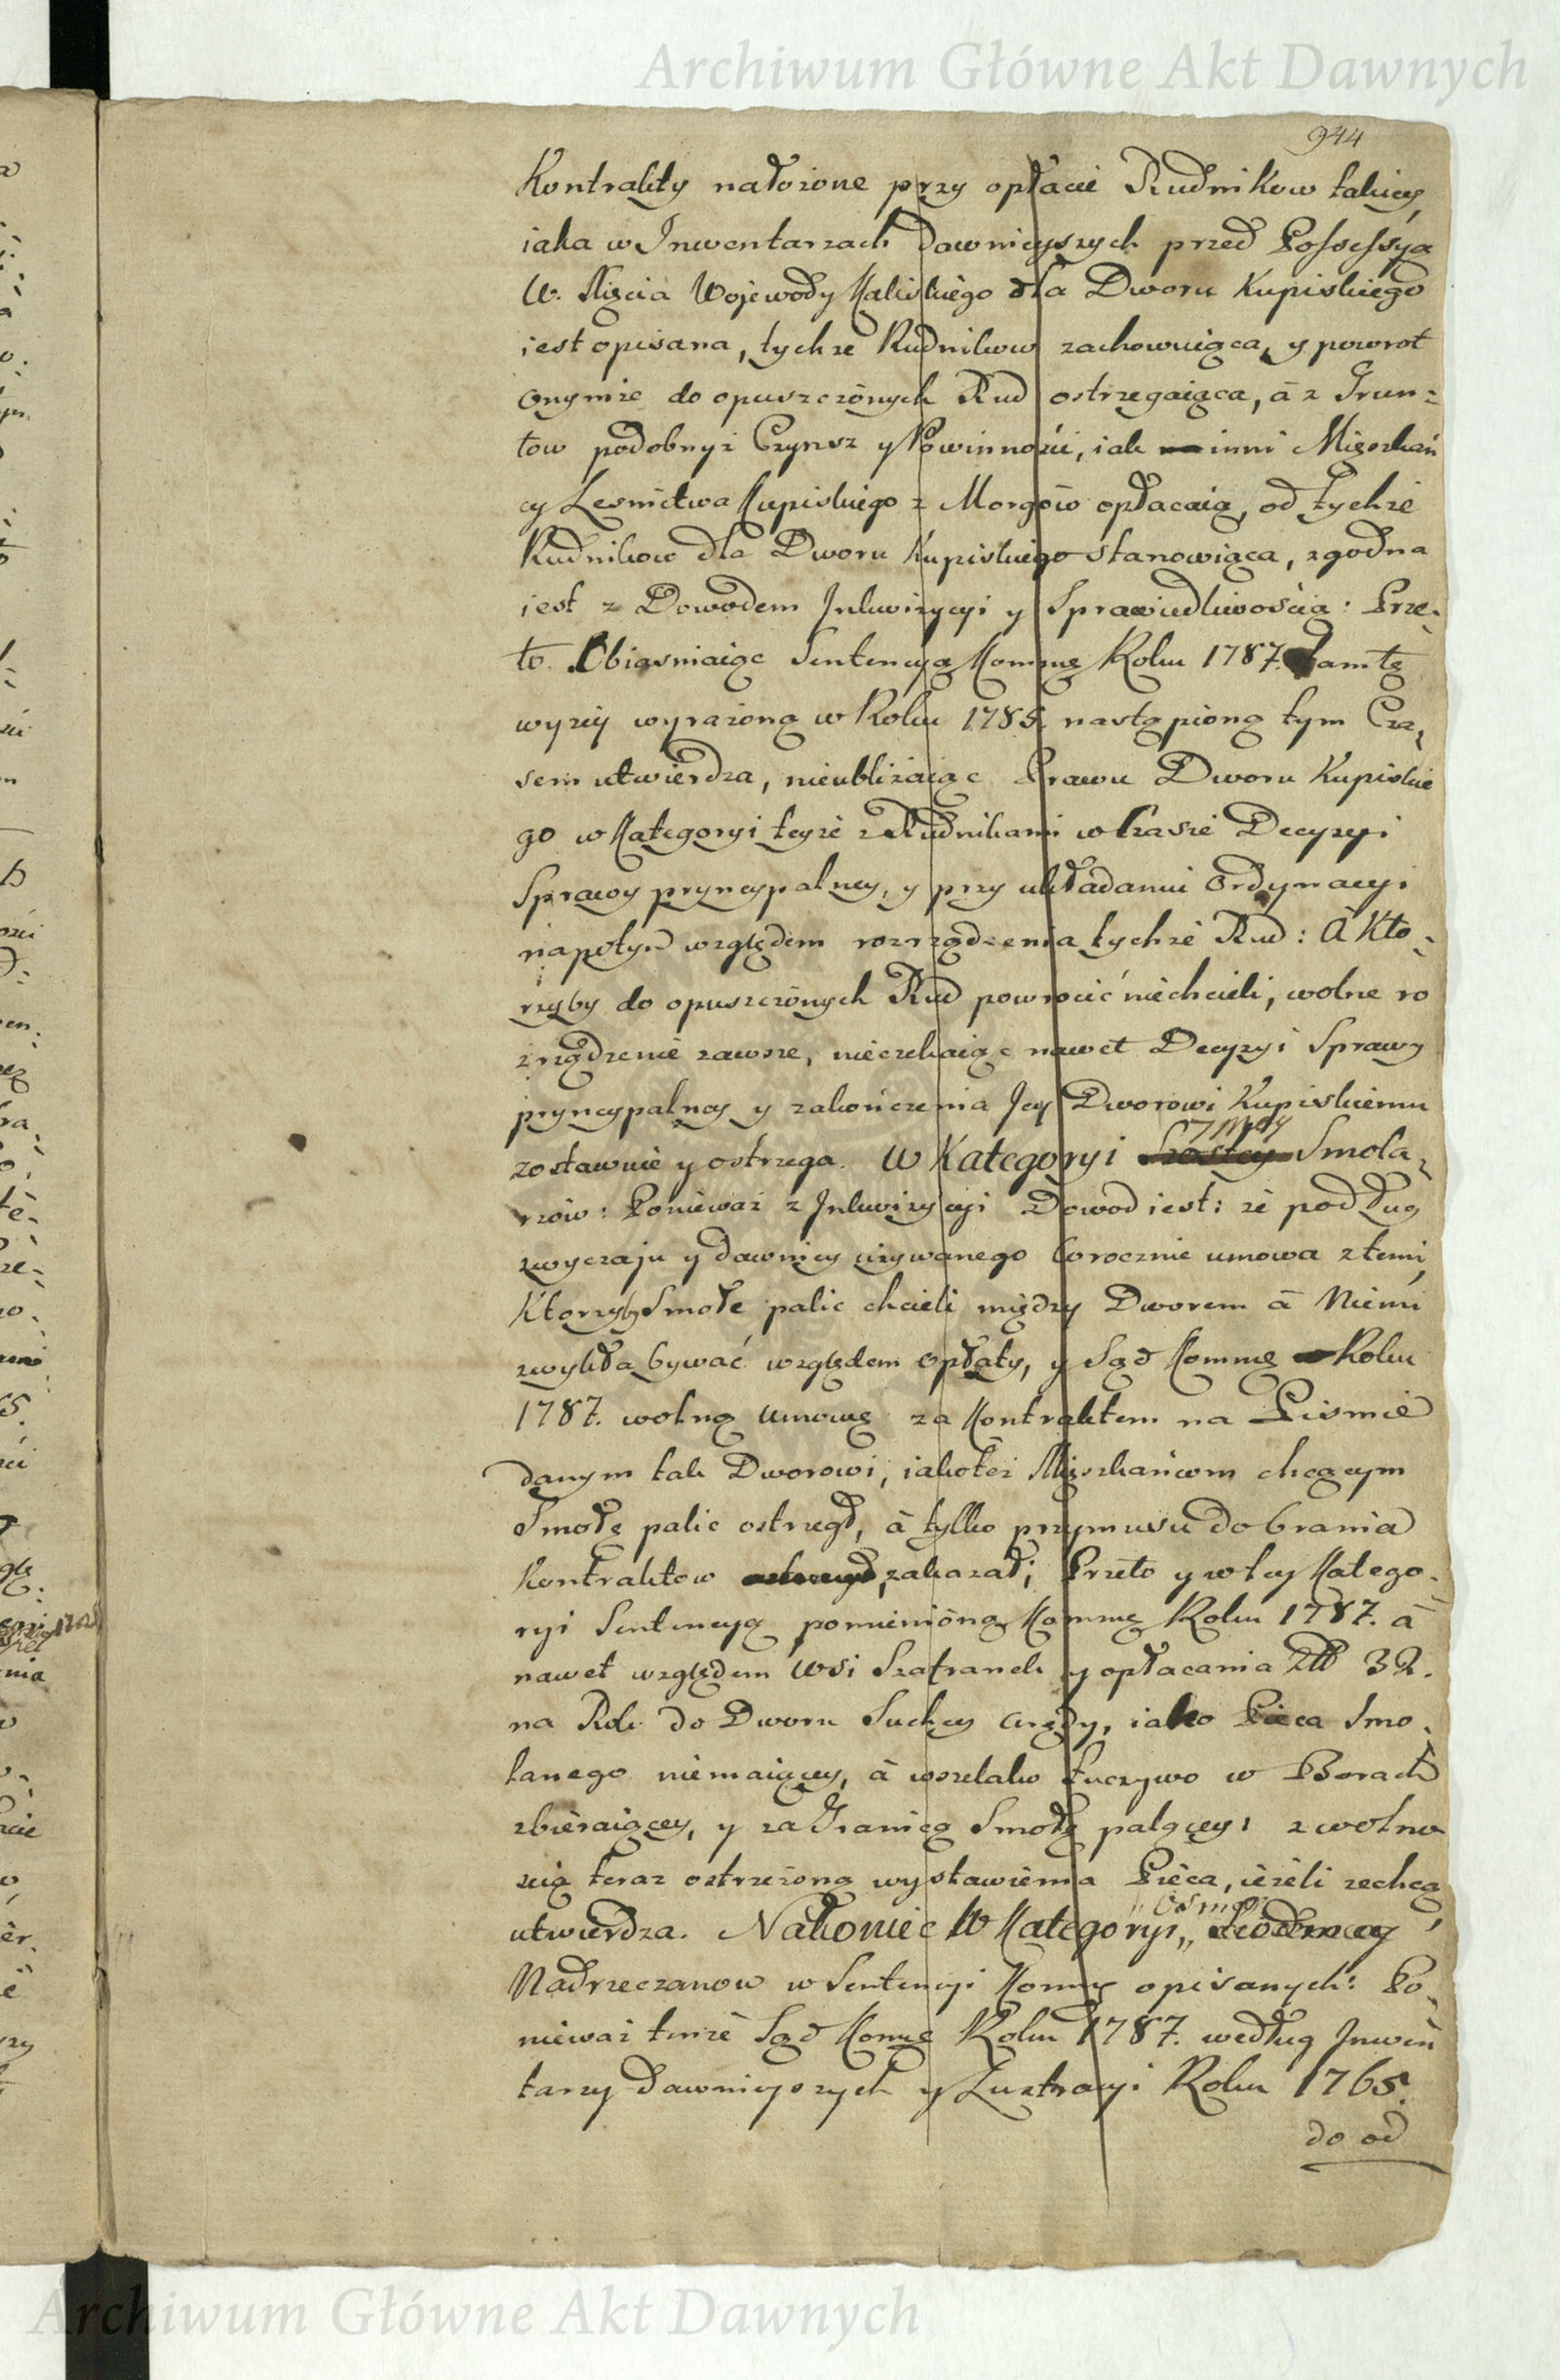 Archiwum Główne Akt Dawnych
944
Kontrakty nałożone przy opłacie Rudnikow takiey,
iaka w Inwentarzach dawnieyszych przed Possessyą
W. Xięcia Wojewody Kaliskiego dla Dworu Kupiskiego
iest opisana, tychże Rudnikow zachowuiąca, y powrot
onymże do opuszczonych Rud ostrzegaiąca, à z Grun-
tow podobnyż Czynsz y Powinności, iak inni Mięszkań
cy Lesnictwa Kupiskiego z Morgów opłacaią, od tychże
Rudnikow dla Dworu Kupiskiego stanowiąca, zgodna
iest z Dowodem Inkwizycyi y Sprawiedliwością: Prze-
to Obiaśniaiąc Sentencyą Kommę Roku 1787. tamtę
wyżey wyrażoną w Roku 1785. nastąpioną tym Cza-
sem utwierdza, nieubliżaiąc Prawu Dworu Kupiskie
go w Kategoryi teyże z Rudnikami w Czasie Decyzyi
Sprawy pryncypalney, y przy układaniu Ordynacyi
napotym względem rozrządzenia tychże Rud: A Kto-
rzyby do opuszczonych Rud powrocić niechcieli, wolne ro
zrządzenie zawsze, nieczekaiąc nawet Decyzyi Sprawy
pryncypalney y zakończenia Jey Dworowi Kupiskiemu
zostawuie y ostrzega. W Kategoryi Szostey 7mey Smola-
rzow: Ponieważ z Inkwizycyi Dowod iest: że podług
zwyczaju y dawniey używanego corocznie umowa z temi,
Ktorzyby Smołe palic chcieli między Dworem à Niemi
zwykła bywać względem opłaty, y Sąd Kommę Roku
1787. wolną umowę za Kontraktem na Piśmie
danym tak Dworowi, iakoteż Mięszkańcom chcącym
Smołę palic ostrzegł, à tylko przymusu do brania
Kontraktow zakazał; Przeto y w tey Katego-
ryi Sentencyą pomienioną Kommę Roku 1787. à
nawet względem Wsi Szafranek y opłacania Złł 32.
na Rok do Dworu Suchey Grędy, iako Pieca Smo-
lanego niemaiącey, à wszelako Łuczywo w Borach
zbieraiącey, y za Granicą Smołę palącey: z wolno
scią teraz ostrzeżoną wystawienia Pieca, ieżeli zechcą,
utwierdza. Nakoniec W Kategoryi „ osmey Siodmey
Nadrzeczanow w Sentencyi Kommę opisanych: Po-
nieważ tenże Sąd Kommę Roku 1787. według Inwen
tarzy dawnieyszych y Lustracyi Roku 1765.
do od
Archiwum Główne Akt Dawnych